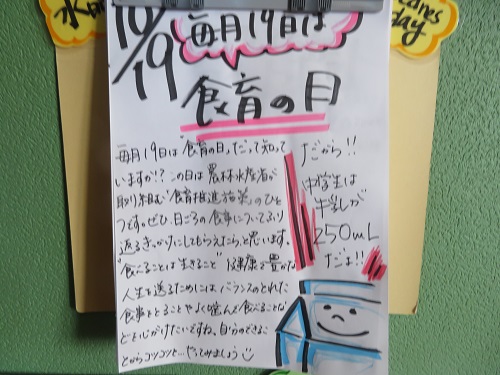 水曜
Wednesday
10/19
毎月19日は
食育の日
毎月19日は"食育の日"だって知って
いますか!?この日は農林水産省が
取り組む"食育推進施策"のひと
つです。ぜひ、日ごろの食事についてふり
返るきっかけにしてもらえたらと思います。
"食べることは生きること"健康で豊かな
人生を送るためにはバランスのとれた
食事をとることやよく噛んで食べることな
どを心がけたいですね。自分のできるこ
とからコツコツと…やってみましょう
だから!!
中学生は
牛乳が
250mL
だよ!!